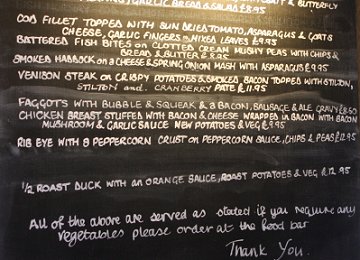 GARLIC BREAD & SALAD £8.95 BUTTERFLY
COD FILLET TOPPED WITH SUN DRIED TOMATO, ASPARAGUS & GOATS
CHEESE, GARLIC FINGERS & MIXED LEAVES £9.95
BATTERED FISH BITES ON CLOTTED CREAM MUSHY PEAS WITH CHIPS &
BREAD & BUTTER £8.95
SMOKED HADDOCK ON A CHEESE & SPRING ONION MASH WITH ASPARAGUS £9.95
VENISON STEAK ON CRISPY POTATOES & SMOKED BACON TOPPED WITH STILTON,
STILTON AND CRANBERRY PATE £11.95
FAGGOTS WITH BUBBLE & SQUEAK & BACON, SAUSAGE & ALE GRAVY
CHICKEN BREAST STUFFED WITH BACON & CHEESE WRAPPED IN BACON WITH
MUSHROOM & GARLIC SAUCE NEW POTATOES & VEG £9.95
RIB EYE WITH PEPPERCORN CRUST ON PEPPERCORN SAUCE, CHIPS & PEAS £12.95
1/2 ROAST DUCK WITH AN ORANGE SAUCE, ROAST POTATOES & VEG £12.95
All of the above are served as stated if you require any
vegetables please order at the food bar
Thank You.